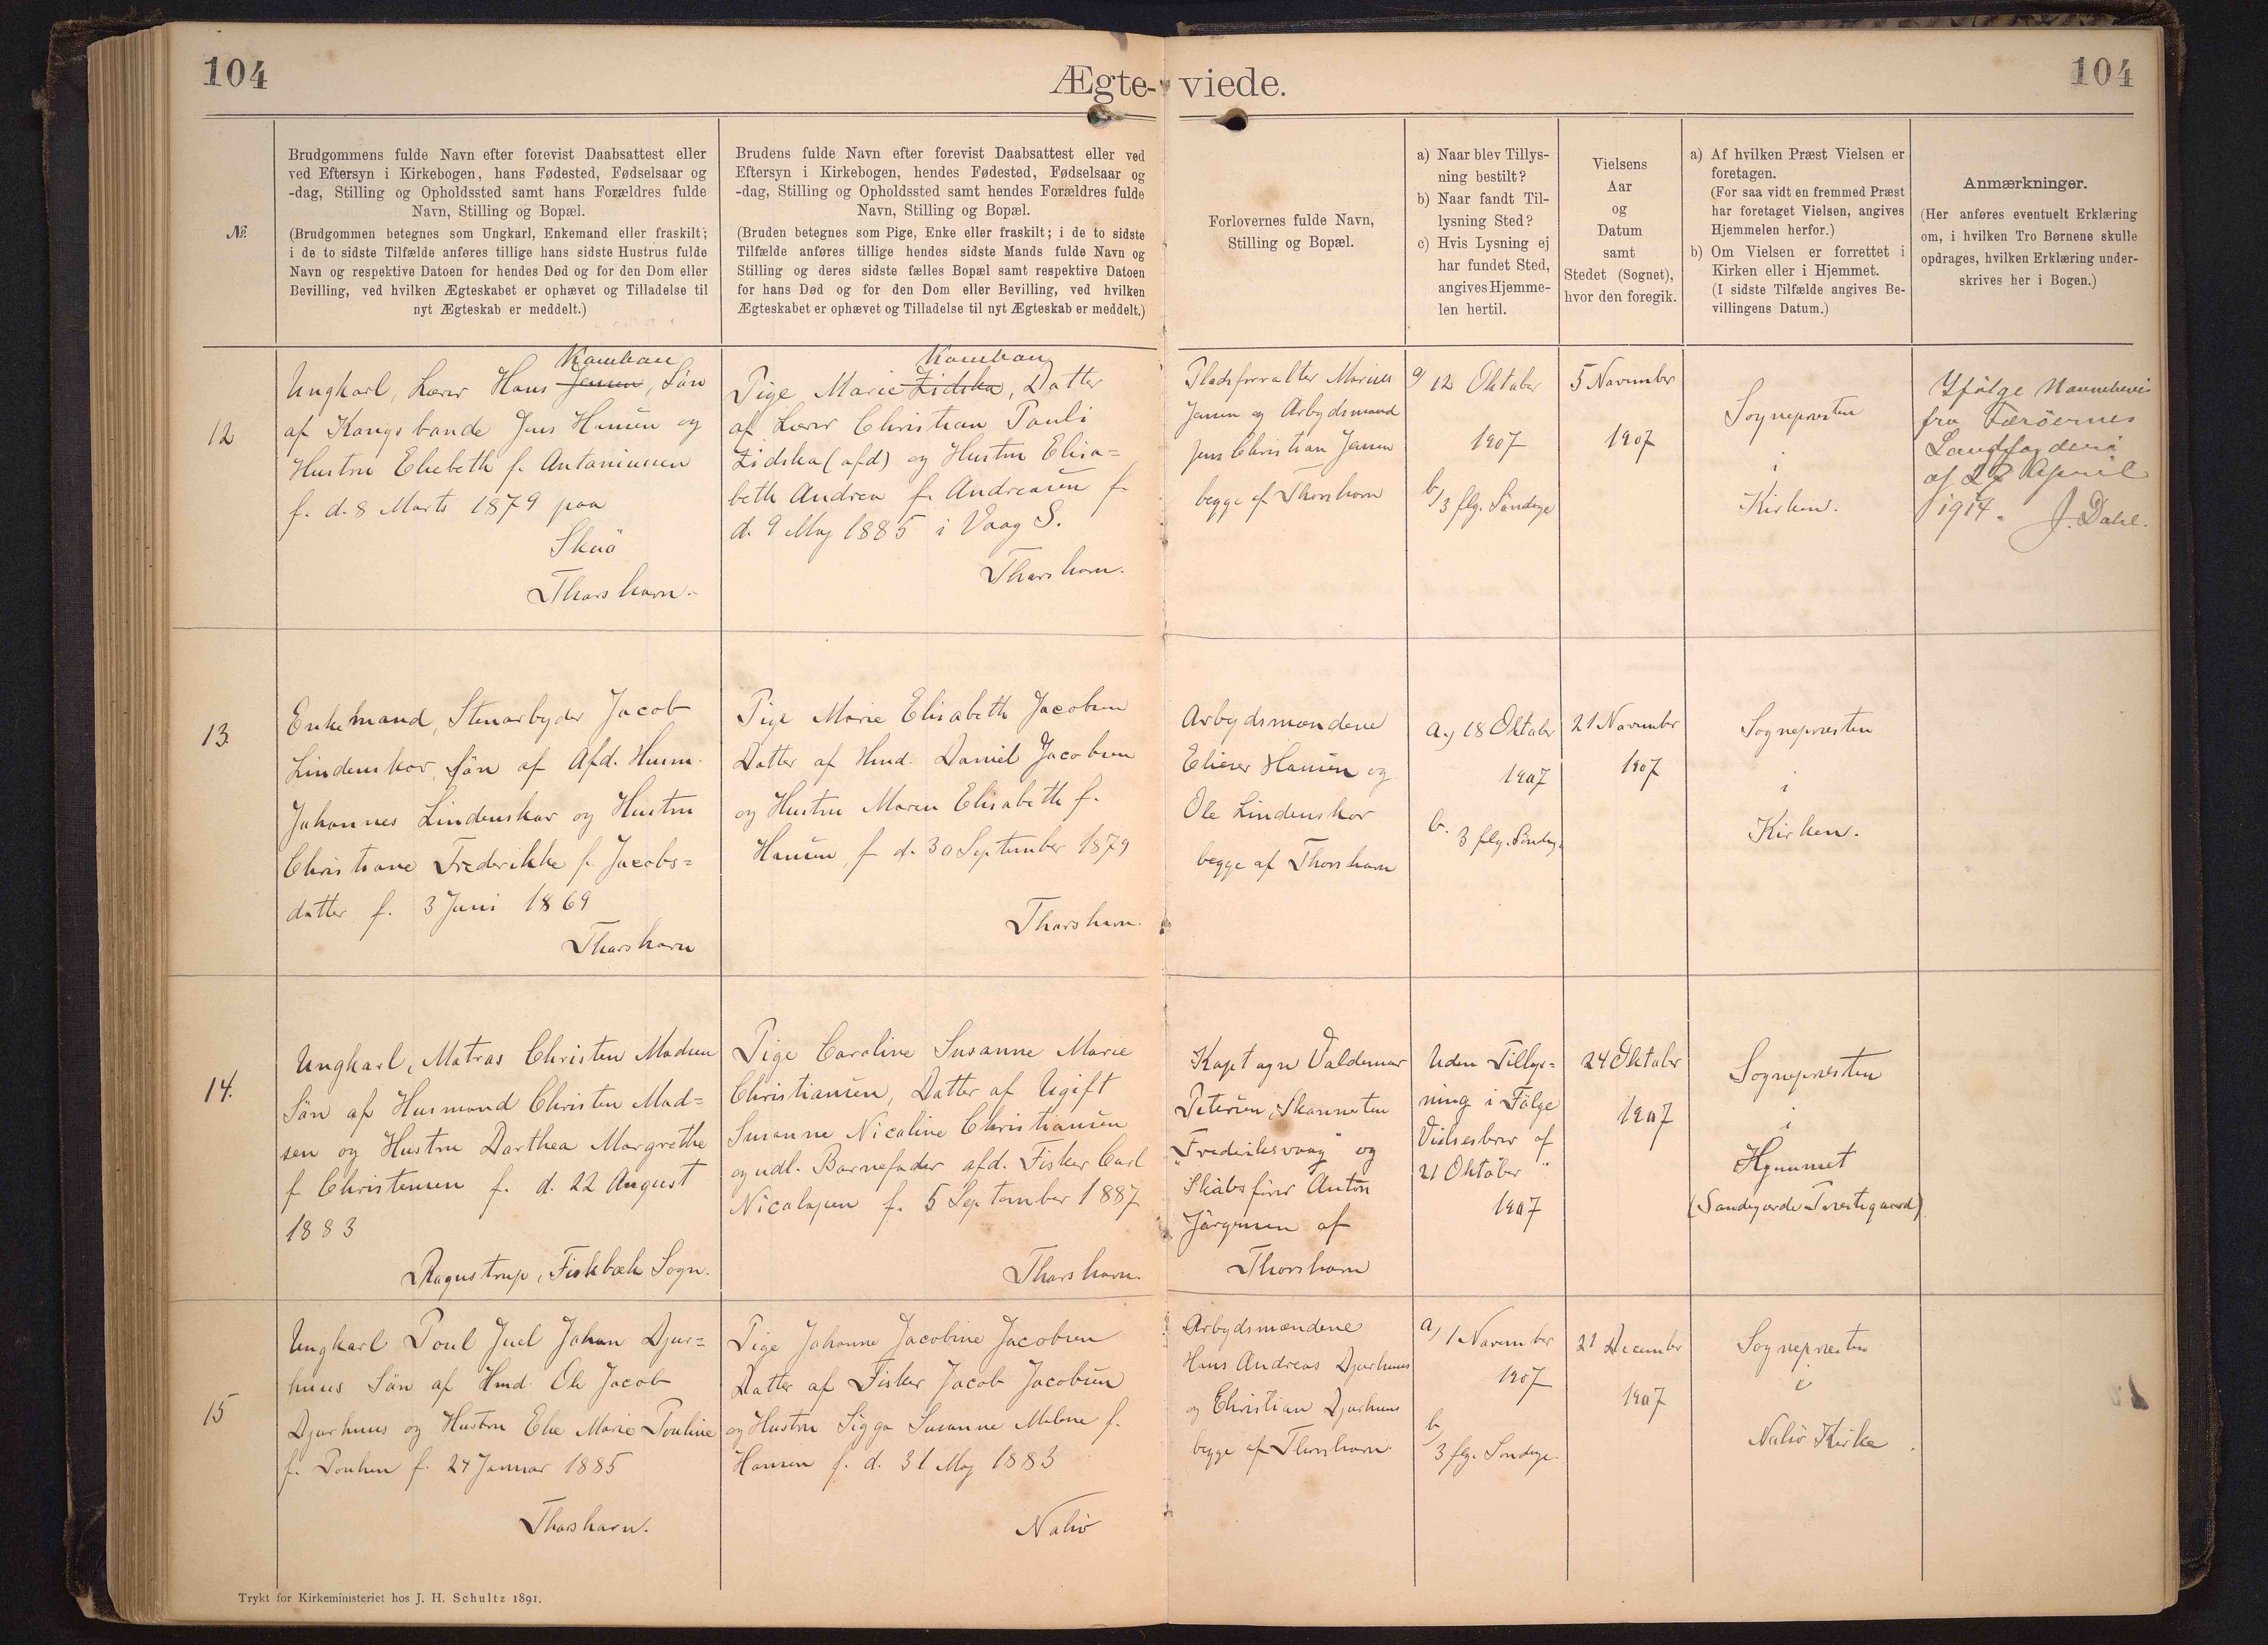 104
Ægte-viede.
104
№.
Brudgommens fulde Navn efter forevist Daabsattest eller
ved Eftersyn i Kirkebogen, hans Fødested, Fødselsaar og
-dag, Stilling og Opholdssted samt hans Forældres fulde
Navn, Stilling og Bopæl.
(Brudgommen betegnes som Ungkarl, Enkemand eller fraskilt;
i de to sidste Tilfælde anføres tillige hans sidste Hustrus fulde
Navn og respektive Datoen for hendes Død og for den Dom eller
Bevilling, ved hvilken Ægteskabet er ophævet og Tilladelse til
nyt Ægteskab er meddelt.)
Brudens fulde Navn efter forevist Daabsattest eller ved
Eftersyn i Kirkebogen, hendes Fødested, Fødselsaar og
-dag, Stilling og Opholdssted samt hendes Forældres fulde
Navn, Stilling og Bopæl.
(Bruden betegnes som Pige, Enke eller fraskilt; i de to sidste
Tilfælde anføres tillige hendes sidste Mands fulde Navn og
Stilling og deres sidste fælles Bopæl samt respektive Datoen
for hans Død og for den Dom eller Bevilling, ved hvilken
Ægteskabet er ophævet og Tilladelse til nyt Ægteskab er meddelt.)
Forlovernes fulde Navn,
Stilling og Bopæl.
a) Naar blev Tillys-
ning bestilt?
b) Naar fandt Til-
lysning Sted?
c) Hvis Lysning ej
har fundet Sted,
angives Hjemme-
len hertil.
Vielsens
Aar
og
Datum
samt
Stedet (Sognet),
hvor den foregik.
a) Af hvilken Præst Vielsen er
foretagen.
(For saa vidt en fremmed Præst
har foretaget Vielsen, angives
Hjemmelen herfor.)
b) Om Vielsen er forrettet i
Kirken eller i Hjemmet.
(I sidste Tilfælde angives Be-
villingens Datum.)
Anmærkninger.
(Her anføres eventuelt Erklæring
om, i hvilken Tro Børnene skulle
opdrages, hvilken Erklæring under-
skrives her i Bogen.)
12
Kamban
Ungkarl, Lærer Hans Jensen, Søn
af Kongsbonde Jens Hansen og
Hustru Elsebeth f. Antoniussen
f. d. 8 Marts 1879 paa
Skuö
Thorshavn.
Kamban
Pige Marie Lidska, Datter
af Lærer Christian Pauli
Lidska (afd) og Hustru Elisa=
beth Andrea f. Andreasen f.
d. 9 Maj 1885 i Vaag S.
Thorshavn.
Pladsforvalter Marius
Jensen og Arbejdsmand
Jens Christian Jensen
begge af Thorshavn
a) 12 Oktober
1907
b) 3 flg. Søndage
5 November
1907
Sognepræsten
i
Kirken.
Ifølge Navnebevis
fra Færöernes
Landfogderi
af 27 April
1914. J. Dahl.
13.
Enkemand, Stenarbejder Jacob
Lindenskov, Søn af Afd. Husm.
Johannes Lindenskov og Hustru
Christiane Frederikke f. Jacobs=
datter, f. 3 Juni 1869
Thorshavn
Pige Marie Elisabeth Jacobsen
Datter af Hmd. Daniel Jacobsen
og Hustru Maren Elisabeth f.
Hansen, f. d. 30 September 1879
Thorshavn.
Arbejdsmændene
Elieser Hansen og
Ole Lindenskov
begge af Thorshavn
a.) 18 Oktober
1907
b. 3 flg. Søndag.
21 November
1907
Sognepræsten
i
Kirken.
14.
Ungkarl, Matros Christen Madsen
Søn af Husmand Christen Mad=
sen og Hustru Dorthea Margrethe
f. Christensen f. d. 22 August
1883
Fiskbæk Sogn.
Pige Caroline Susanne Marie
Christiansen, Datter af Ugift
Susanne Nicoline Christiansen
og udl. Barnefader afd. Fisker Carl
Nicolajsen f. 5 September 1887
Thorshavn.
Kaptajn Valdemar
Petersen, Skonnerten
"Frederiksvaag" og
Skibsfører Anton
Jörgensen af
Thorshavn
Uden Tillys=
ning i Følge
Vielsesbrev af
21 Oktober
1907
24 Oktober
1907
Sognepræsten
i
Hjemmet
(Sandegærde Præstegaard)
15
Ungkarl Poul Juel Johan Djur=
huus Søn af Hmd. Ole Jacob
Djurhuus og Hustru Else Marie Pouline
f. Poulsen f. 27 Januar 1885
Thorshavn.
Pige Johanne Jacobine Jacobsen
Datter af Fisker Jacob Jacobsen
og Hustru Sigga Susanne Malene f.
Hansen f. d. 31 Maj 1883
Nolsö
Arbejdsmændene
Hans Andreas Djurhuus
og Christian Djurhuus
begge af Thorshavn
a) 1 November
1907
b)
3 flg. Søndage.
21 December
1907
Sognepræsten
i
Nolsö Kirke.
Trykt for Kirkeministeriet hos J. H. Schultz 1891.